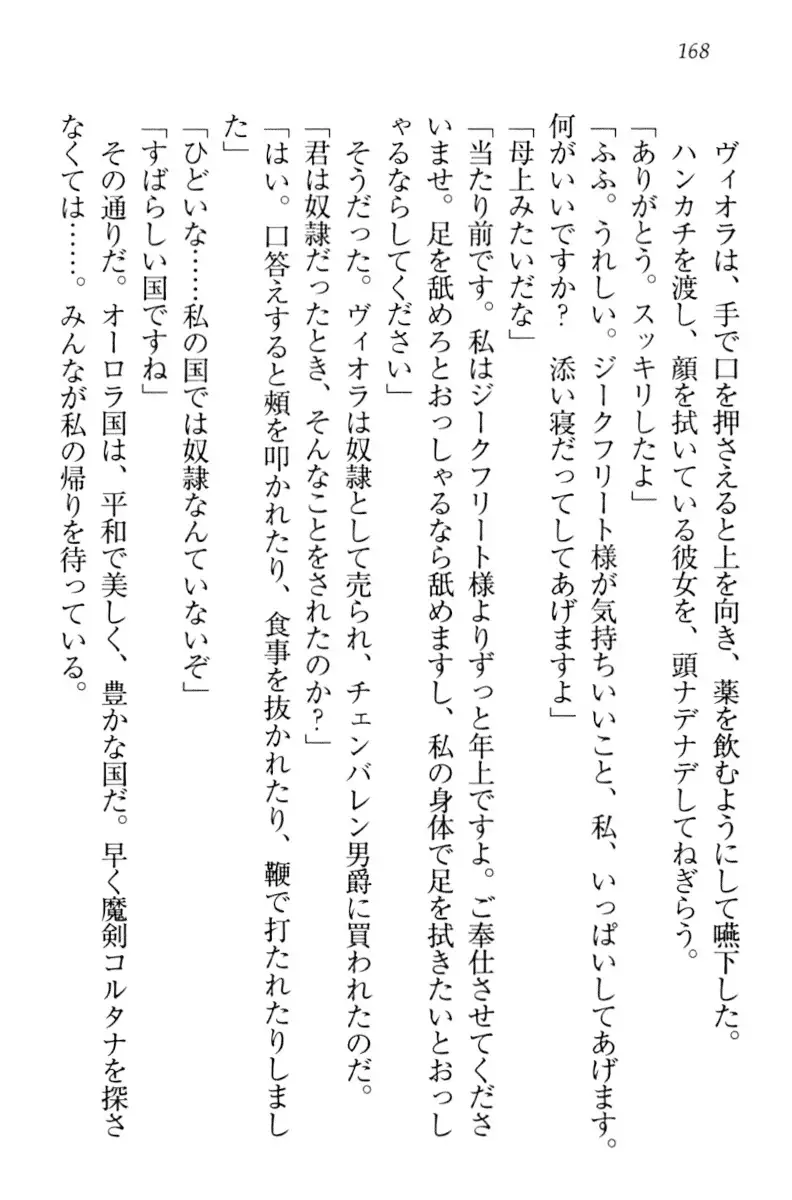 168
ヴィオラは、手で口を押さえると上を向き、薬を飲むようにして嚥下した。
ハンカチを渡し、顔を拭いている彼女を、頭ナデナデしてねぎらう。
「ありがとう。スッキリしたよ」
「ふふ。うれしい。ジークフリート様が気持ちいいこと、私、いっぱいしてあげます。
何がいいですか？　添い寝だってしてあげますよ」
「母上みたいだな」
「当たり前です。私はジークフリート様よりずっと年上ですよ。ご奉仕させてくださ
いませ。足を舐めろとおっしゃるなら舐めますし、私の身体で足を拭きたいとおっし
ゃるならしてください」
そうだった。ヴィオラは奴隷として売られ、チェンバレン男爵に買われたのだ。
「君は奴隷だったとき、そんなことをされたのか？」
「はい。口答えすると頰を叩かれたり、食事を抜かれたり、鞭で打たれたりしまし
た」
「ひどいな……私の国では奴隷なんていないぞ」
「すばらしい国ですね」
その通りだ。オーロラ国は、平和で美しく、豊かな国だ。早く魔剣コルタナを探さ
なくては……。みんなが私の帰りを待っている。